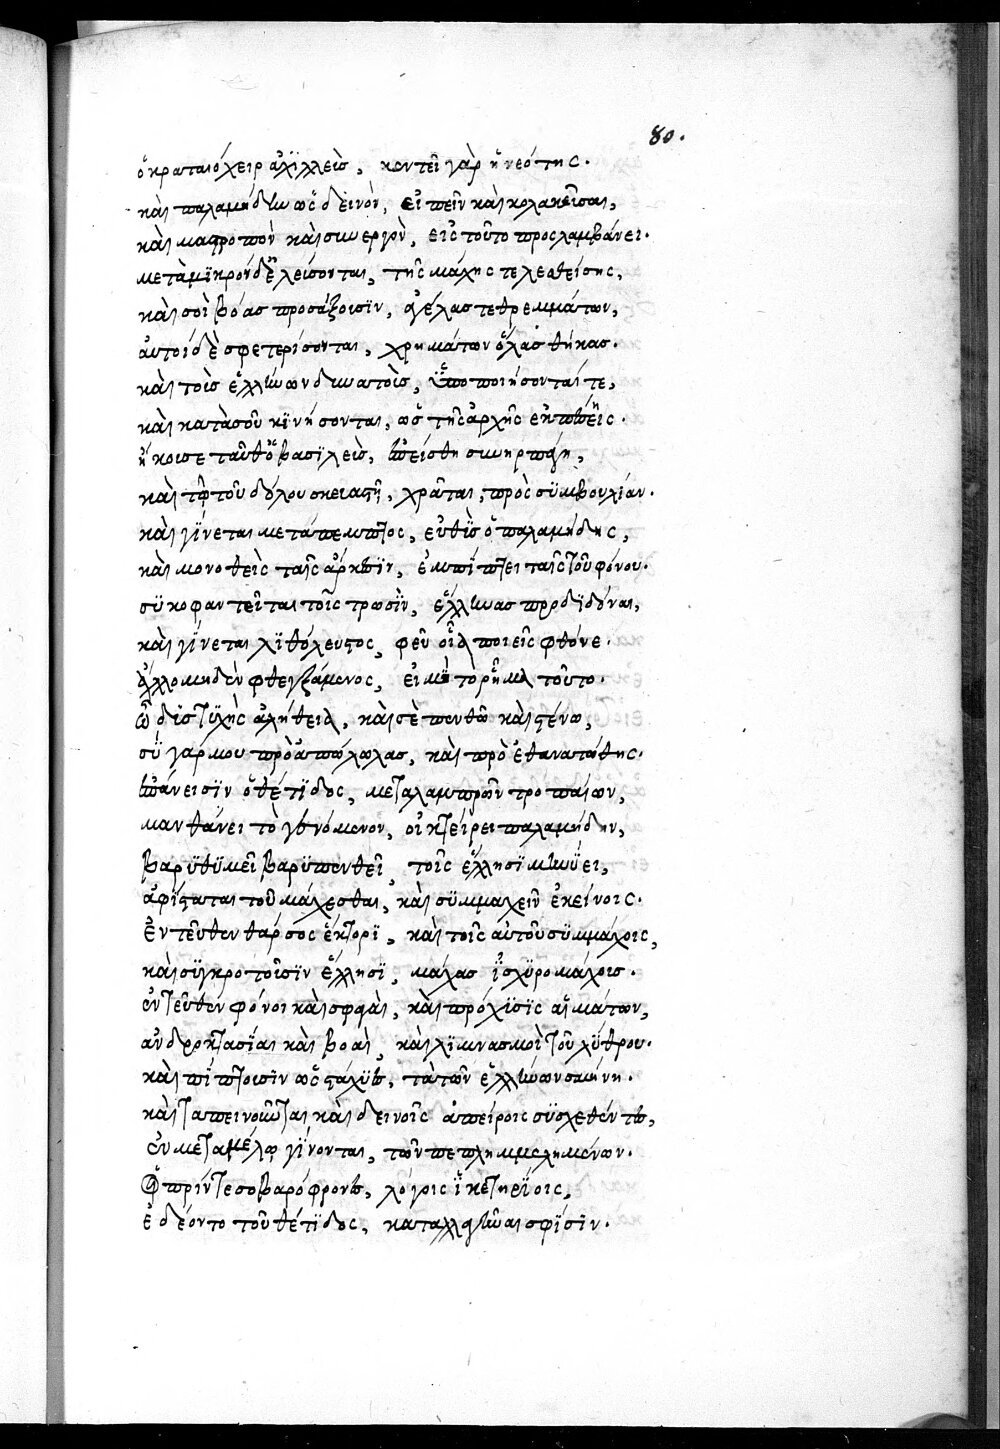 80.
ὁ κραταιόχειρ ἀχϊλλεὺσ, κεντεῖ γὰρ ἡ νεότης.
καὶ παλαμήδην ὡς δεινὸν, εἰπεῖν καὶ κολακεῦσαι,
καὶ μαστροπὸν καὶ συνεργὸν, εἰς τοῦτο προσλαμβάνει.
μετὰ μϊκρὸν δ' ἐλεύσονται, τῆς μάχης τελεσθείσης,
καὶ σοὶ βόας προσάξουσϊν, ἀγέλας τε θρεμμάτων,
αὐτοὶ δὲ σφετερίσονται, χρημάτων ὅλας θήκασ.
καὶ τοὺσ ἑλλήνων δυνατοὺσ, ὑποποιήσονταί τε,
καὶ κατὰ σοῦ κϊνήσονται, ὡς τῆς ἀρχῆς ἐκπέσῃς.
ἤκουσε ταῦθ' ὁ βασϊλεὺσ, ἐπείσθη συνηρπάγη,
καὶ τῷ τοῦ δόλου σκευαστῇ, χρᾶται, πρὸς σϋμβουλίαν.
καὶ γίνεται μετάπεμπτος, εὐθὺσ ὁ παλαμήδης,
καὶ μονωθεὶς ταῖς ἄρκυσϊν, ἐμπίπτει ταῖς τοῦ φόνου.
σϋκοφαντεῖται τοῖς τρωσὶν, ἕλληνασ προδϊδόναι,
καὶ γίνεται λϊθόλευστος, φεῦ οἷα ποιεῖς φθόνε.
ἄλλο μηδὲν φθεγξάμενος, εἰ μὴ τὸ ῥῆμα τοῦτο.
ὦ δυστϋχὴς ἀλήθεια, καὶ σὲ πενθῶ καὶ στένω,
σὺ γάρ μου προαπώλωλασ, καὶ πρὸ ἐθανατώθης.
ἐπάνεισϊν ὁ θέτϊδος, μετὰ λαμπρῶν τροπαίων,
μανθάνει τὸ γενόμενον, οἰκτείρει παλαμήδην,
βαρϋθϋμεῖ βαρϋπενθεῖ, τοῖς ἕλλησϊ μηνύει,
ἀφίσταται τοῦ μάχεσθαι, καὶ σϋμμαχεῖν ἐκείνοις.
Ἐντεῦθεν θάρσος ἕκτορϊ, καὶ τοῖς αὐτοῦ σϋμμάχοις,
καὶ σϋγκροτοῦσϊν ἕλλησϊ, μάχασ ἰσχϋρομάχουσ.
ἐντεῦθεν φόνοι καὶ σφαγαὶ, καὶ πρόχϋσϊς αἱμάτων,
ἀνδροκτασίαι καὶ βοαὶ, καὶ λϊμνασμοὶ τοῦ λύθρου.
καὶ πίπτουσϊν ὡς στάχϋες, τὰ τῶν ἑλλήνων σμήνη.
καὶ ταπεινοῦνται καὶ δεινοῖς ἀπείροις σϋσχεθέντες,
ἐν μεταμέλῳ γίνονται, τῶν πεπλημμελημένων.
Οἱ πρίν τε σοβαρόφρονες, λόγοις ἱκετηρίοις,
ἐδέοντο τοῦ θέτϊδος, καταλλαγῆναι σφίσϊν.